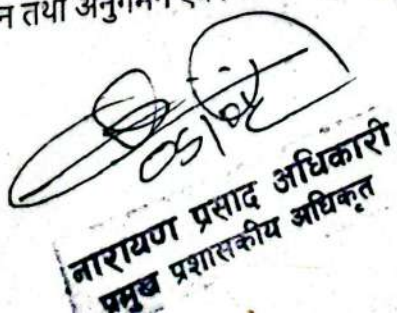 तथा अनुगमन
नारायण प्रसाद अधिकारी
प्रमुख प्रशासकीय अधिकृत